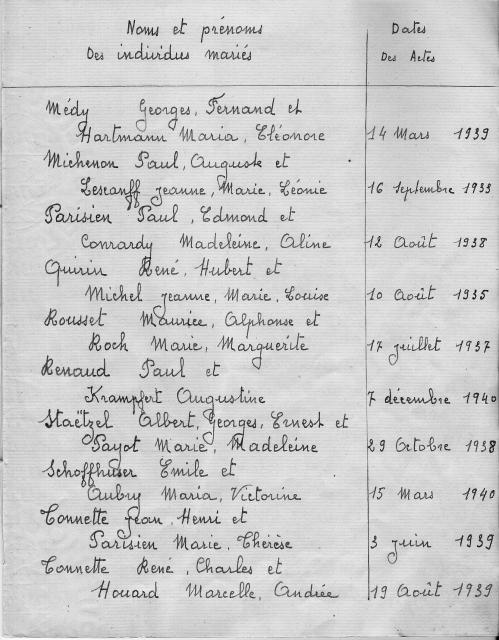 Noms et prénoms Dates
Des individus mariés Des Actes
Médy Georges, Fernand et
Hartmann Maria, Eléonore 14 Mars 1939
Michenon Paul, Auguste et
Lescanff Jeanne, Marie, Léonie 16 Septembre 1933
Parisien Paul, Edmond et
Conrardy Madeleine, Aline 12 Août 1938
Quirin René, Hubert et
Michel Jeanne, Marie, Louise 10 Août 1935
Rousset Maurice, Alphonse et
Roch Marie, Marguerite 17 juillet 1937
Renaud Paul et
Krampfert Augustine 7 décembre 1940
Staëtzel Albert, Georges, Ernest et
Payot Marie, Madeleine 29 Octobre 1938
Schoffhuser Emile et
Aubry Maria, Victorine 15 Mars 1940
Tonnette Jean, Henri et
Parisien Marie, Thérèse 3 juin 1939
Tonnette René, Charles et
Houard Marcelle, Andrée 19 Août 1939